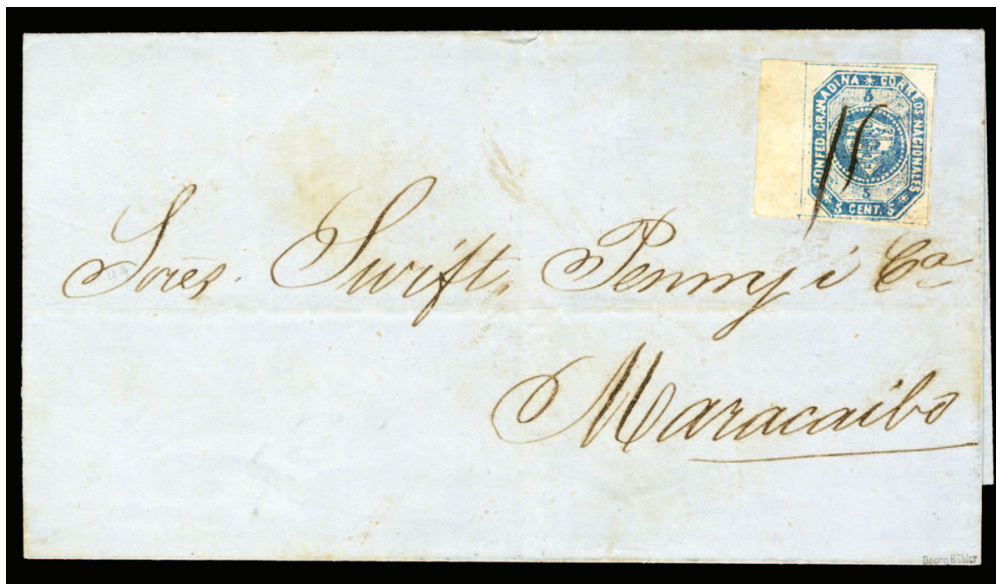 CONFED. GRANADINA * CORREOS NACIONALES
5
5
* 5 CENT. 5 *
Sores. Swift, Penny i Ca
Maracaibo
Georg Bühler